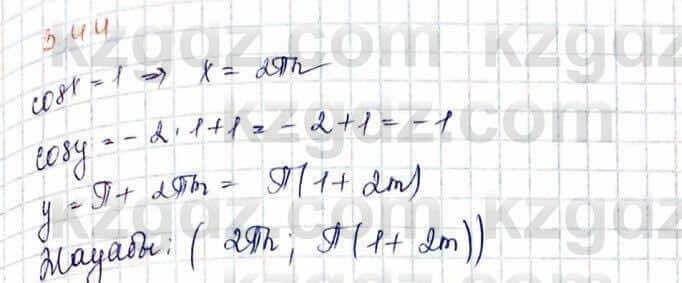 3.44
cosx = 1 => x = 2πn
cosy = - 2 · 1 + 1 = - 2 + 1 = - 1
y = π + 2πm = π(1 + 2m)
Жауабы: ( 2πn ; π(1 + 2m))
kzgdz.com kzgdz
kzgdz.com
kzgdz.com kzgdz
kzgdz.com